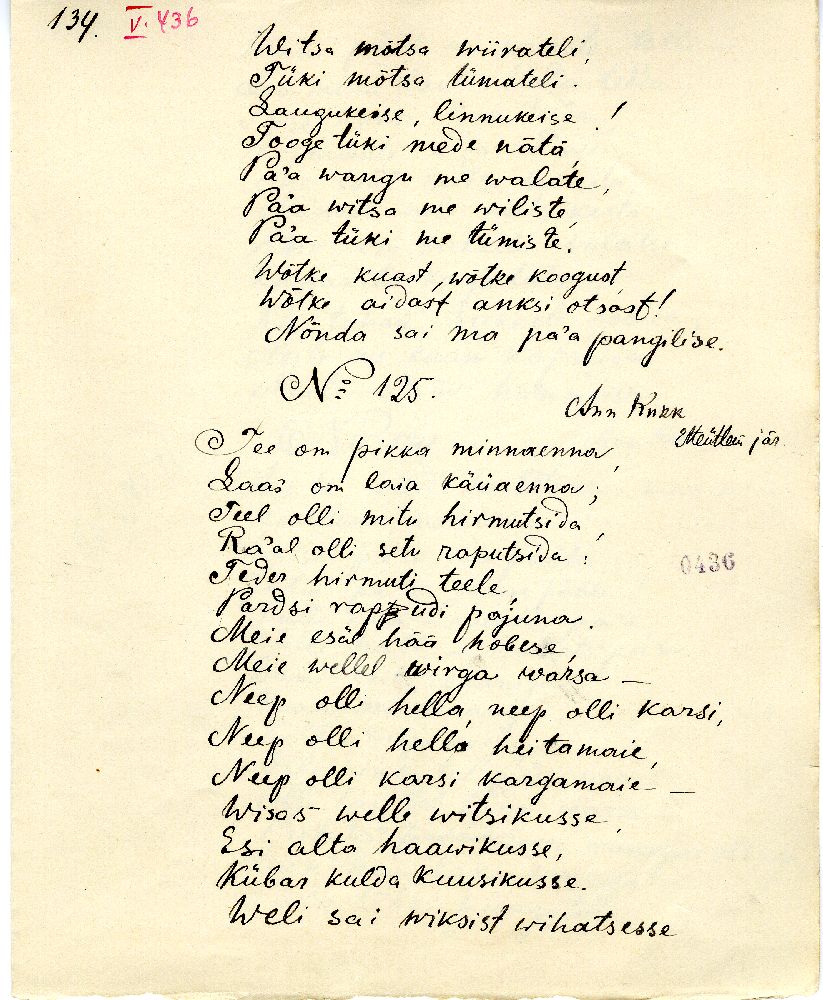 134. V. 436
Witsa mõtsa wiirateli,
Tüki mõtsa tümateli.
Laugukeise, linnukeise!
Tooge tüki mede nätä,
Pää wangu me walate,
Pää witsa me wiliste,
Pää tüki me tümiste.
Wõtke kuast, wõtke koogust,
Wõtke aidast anksi otsast!
Nõnda sai ma pää pangilise.
No 125.
Ann Kukk
jär.
Tee om pikka minnaenna,
Laas om laia käüaenna;
Teel olli mitu hirmutsida,
Rääl olli setu raputsida:
Teder hirmuti teele,
Pardsi rappudi pajuna.
Meie esäl hää hobese,
Meie wellel wirga warsa –
Neep olli hella, neep olli karsi,
Neep olli hella heitamaie,
Neep olli karsi kargamaie –
Wisas welle witsikusse,
Esi alta haawikusse,
Kübar kulda kuusikusse.
Weli sai wiksist wihatsesse
0436